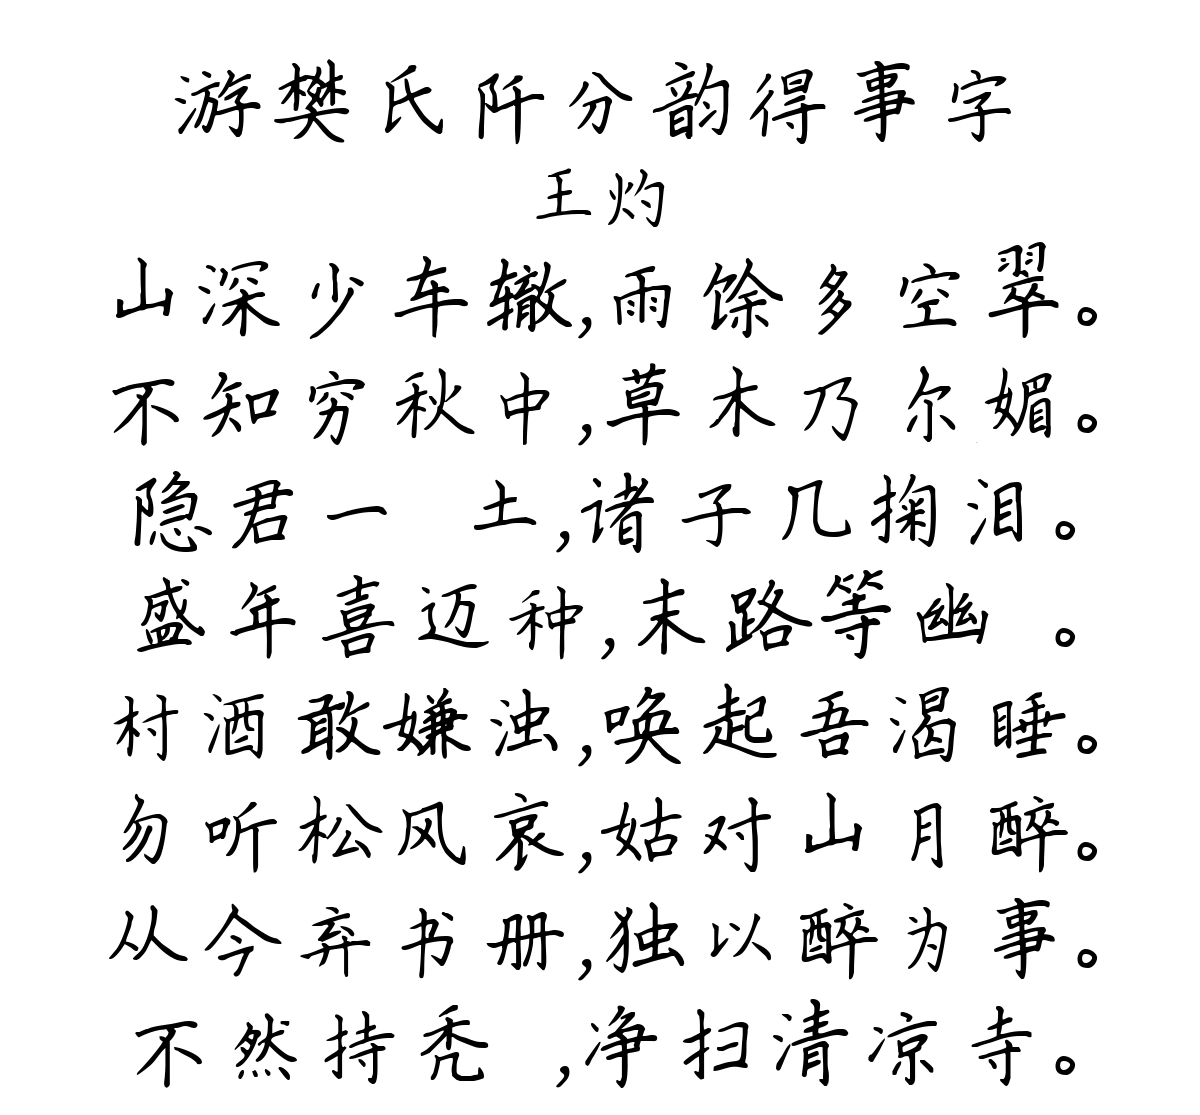 游樊氏阡分韵得事字
王灼
山深少车辙,雨馀多空翠。
不知穷秋中,草木乃尔媚。
隐君一 土,诸子几掬泪。
盛年喜迈种,末路等幽 。
村酒敢嫌浊,唤起吾渴睡。
勿听松风哀,姑对山月醉。
从今弃书册,独以醉为事。
不然持秃 ,净扫清凉寺。